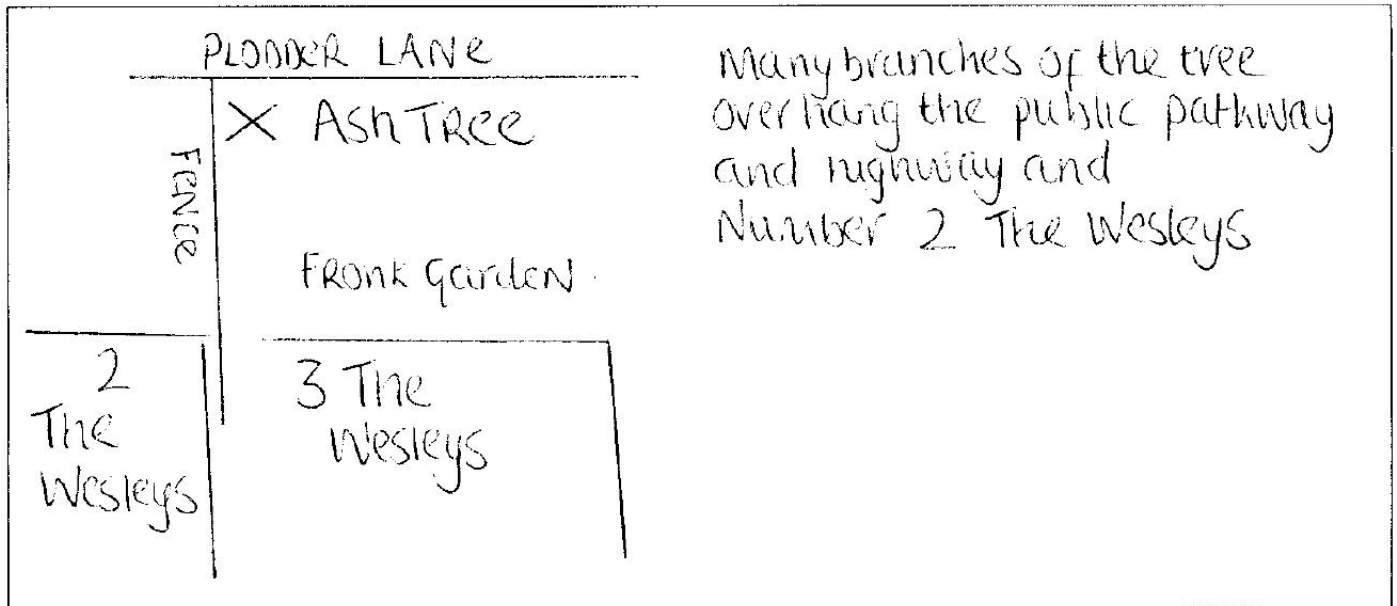 PLODDER LANE
X ASH TREE
FENCE
FRONT GARDEN
2
The
Wesleys
3 The
Wesleys
Many branches of the tree
overhang the public pathway
and highway and
Number 2 The Wesleys